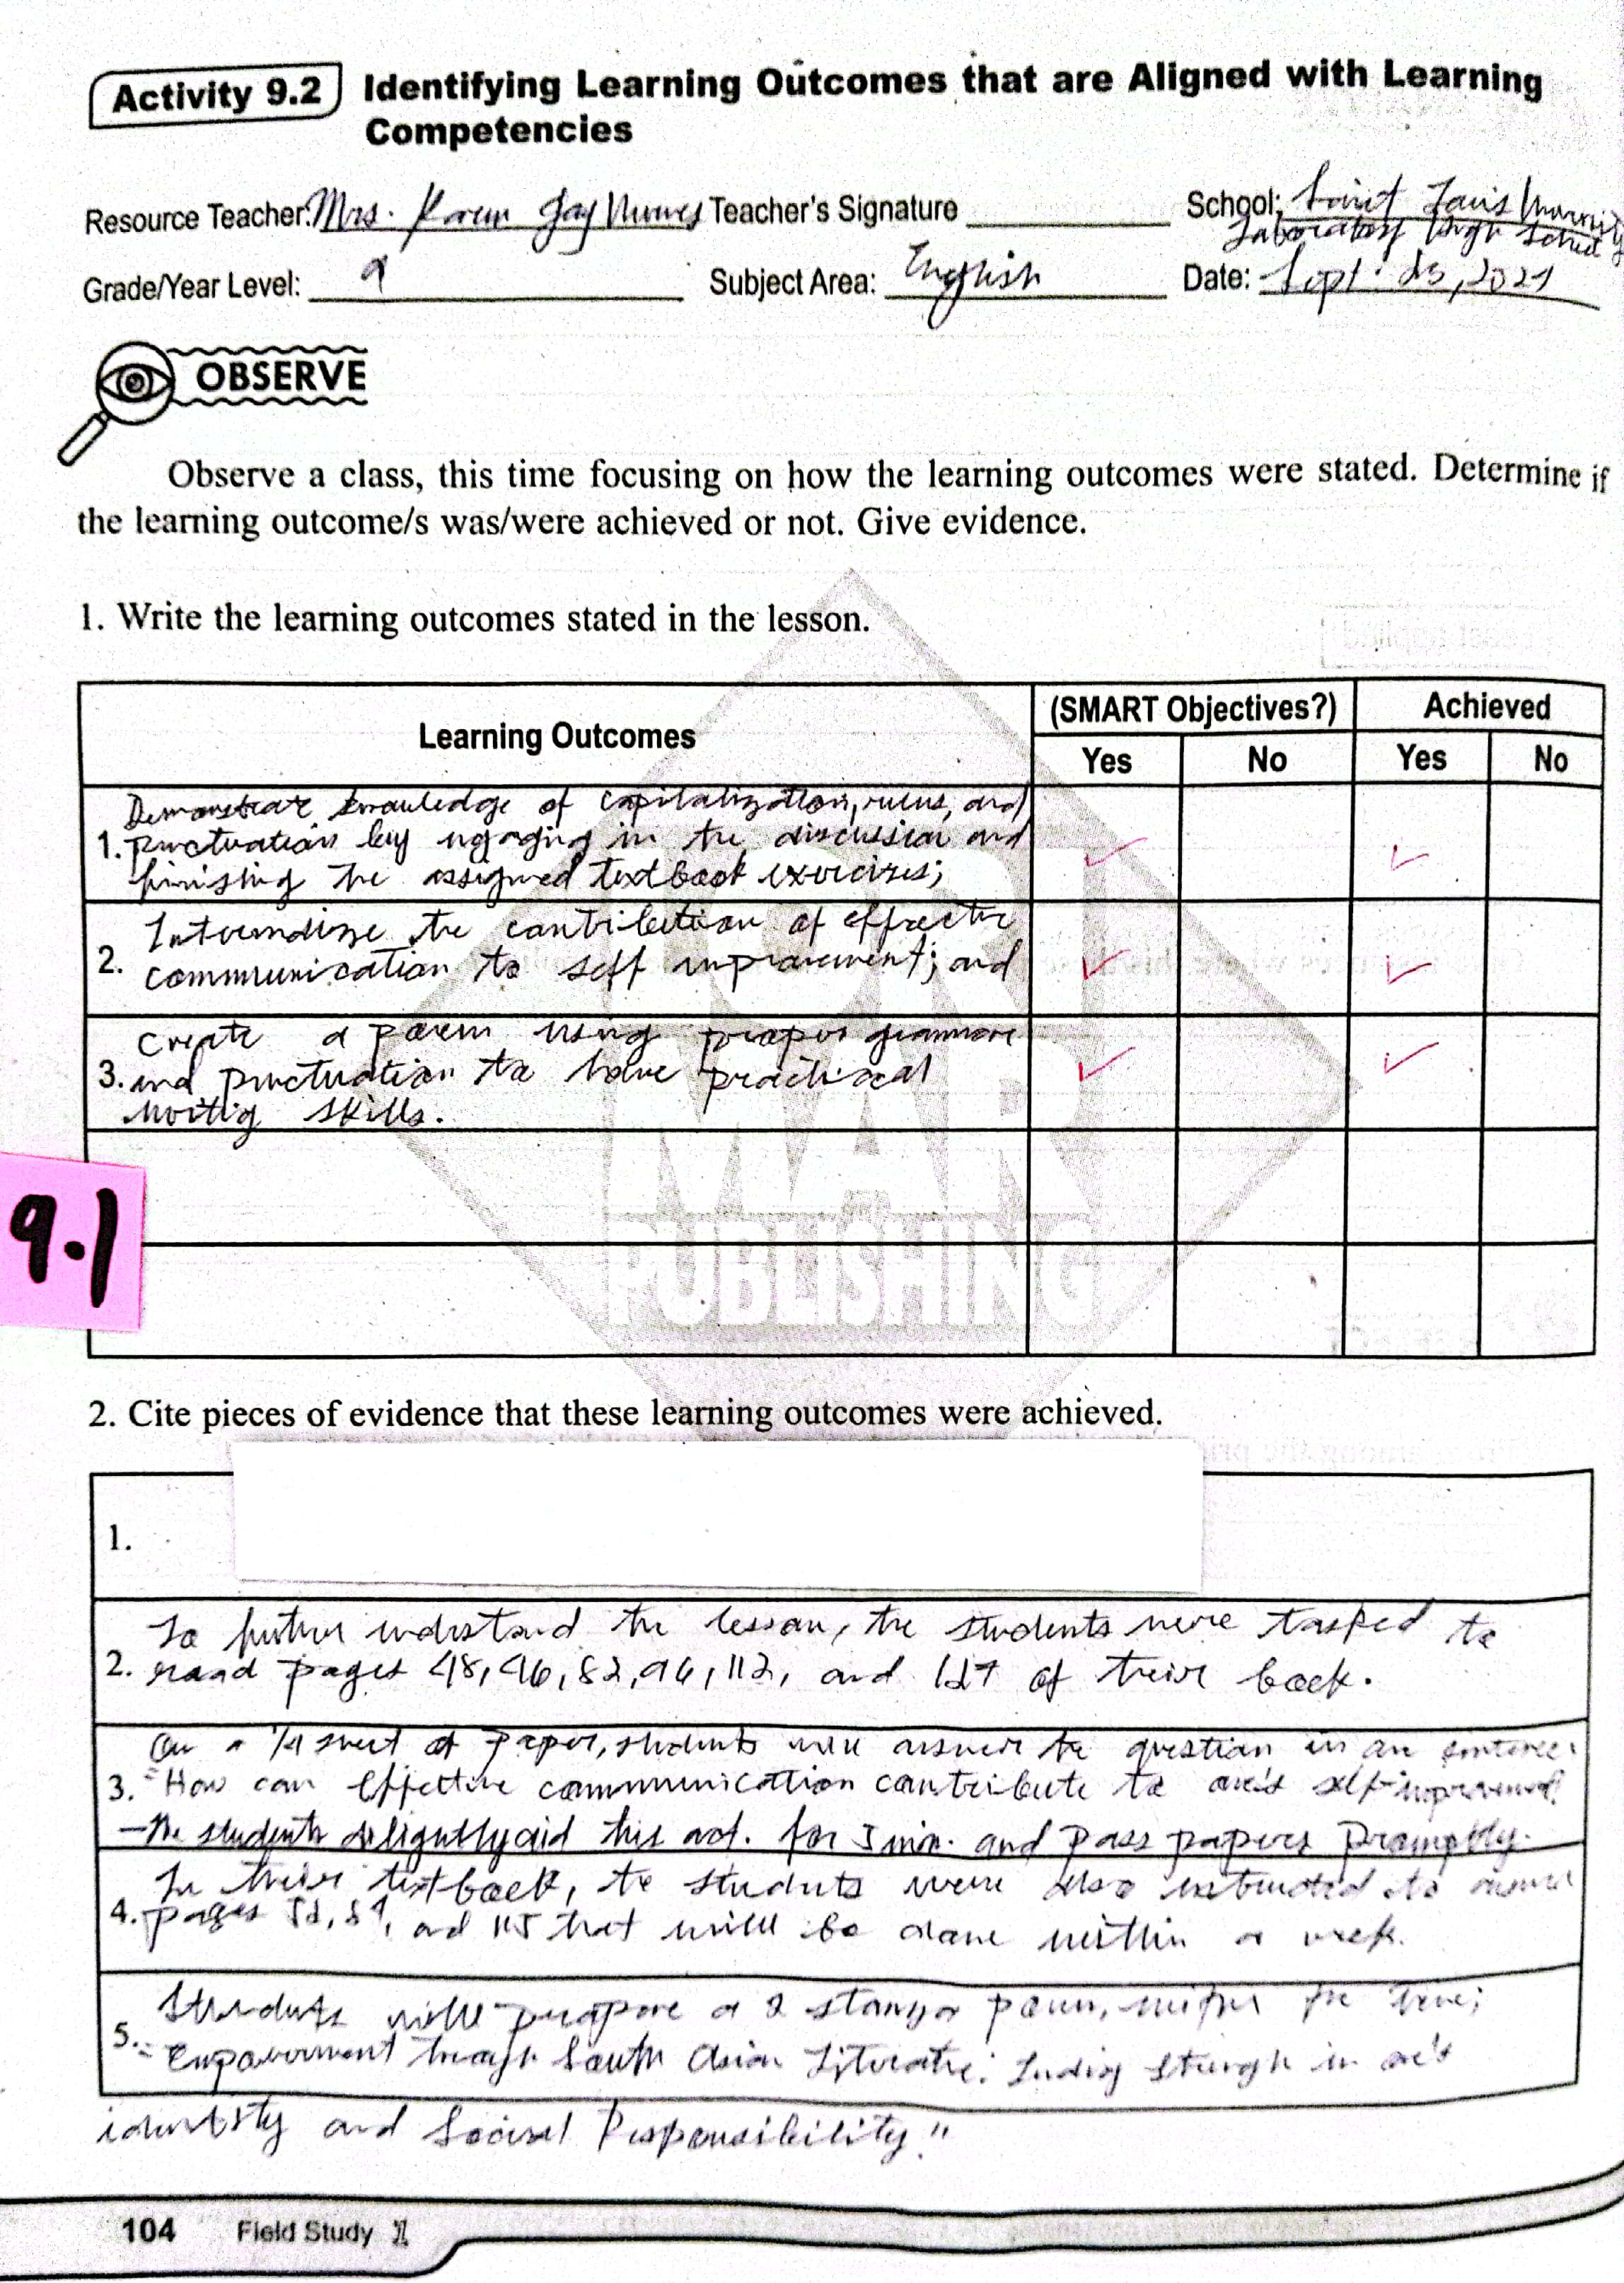 Activity 9.2 Identifying Learning Outcomes that are Aligned with Learning
Competencies
Resource Teacher: Mrs. Karen Jay Teacher's Signature School: Saint Louis
Laboratory High School
Grade/Year Level: 9 Subject Area: English Date: Sept. 23, 2024
OBSERVE
Observe a class, this time focusing on how the learning outcomes were stated. Determine if
the learning outcome/s was/were achieved or not. Give evidence.
1. Write the learning outcomes stated in the lesson.
Learning Outcomes (SMART Objectives?) Achieved
Yes No Yes No
Demonstrate knowledge of capitalization, rules, and
1. punctuation by engaging in the discussion and
finishing the assigned textbook exercises;
Internalize the contribution of effective
2. communication to self improvement; and
create a poem using proper grammar
3. and punctuation to have practical
writig skills.
9.1
MAR
PUBLISHING
2. Cite pieces of evidence that these learning outcomes were achieved.
1.
To further understand the lesson, the students were tasked to
2. read pages 48, 46, 82, 96, 112, and of their book.
On a 1/4 sheet of paper, students will answer the question in an sentence:
3. "How can effective communication contribute to one's self-improvement?
- The students did this act. for 5 min. and pass papers promptly.
In their textbook, the students were also instructed to answer
4. pages and 115 that will be done within a week.
Students will prepare a 2 stanza poem, the
5. "Empowerment through South Asian Literature: in one's
identity and Social Responsibility"
104 Field Study